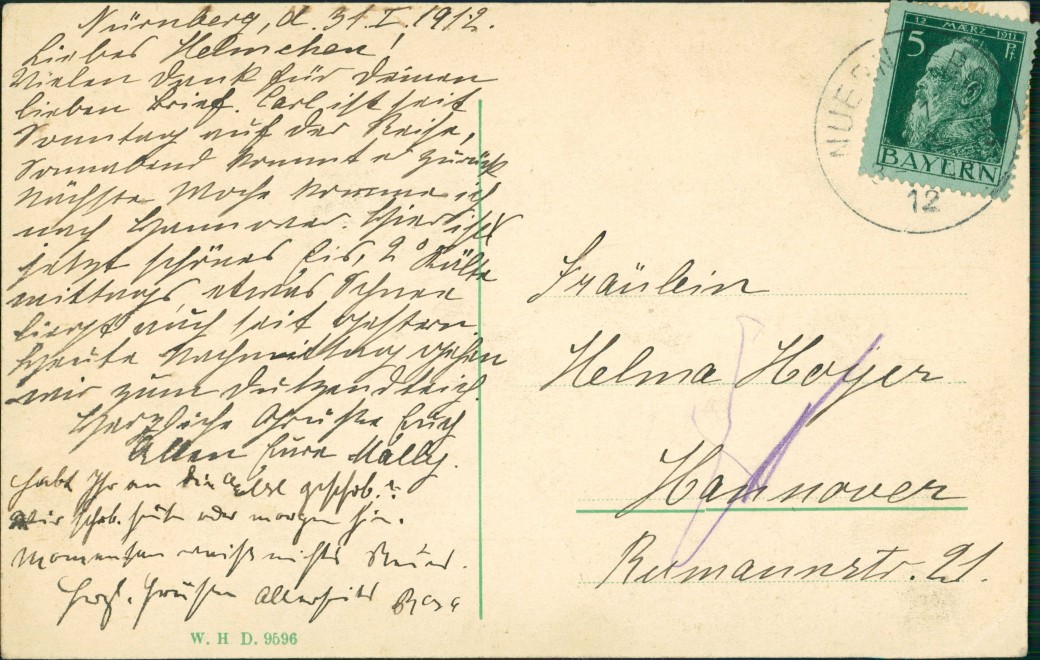 Nürnberg, d. 31.I.1912.
Liebes Helmchen!
Vielen Dank für Deinen
lieben Brief. Carl ist seit
Sonntag auf der Reise,
Sonnabend kommt er zurück
Nächste Woche komme ich
nach Hannover. Hier ist
jetzt schönes Eis, 2° Kälte
mittags, etwas Schnee
liegt auch seit gestern.
Heute Nachmittag gehen
wir zum Dutzendteich.
Herzliche Grüße Euch
Allen Eure Mally.
Habt Ihr an die Else geschrb.?
Wir schrb. heute oder morgen hin.
Momentan weiß nichts Neues.
Herzl. Grüßen allerseits
W. H D. 9596
12 MÆRZ 1911
5 Pf
BAYERN
NUE
12
Fräulein
Helma Hoyer
Hannover
21.